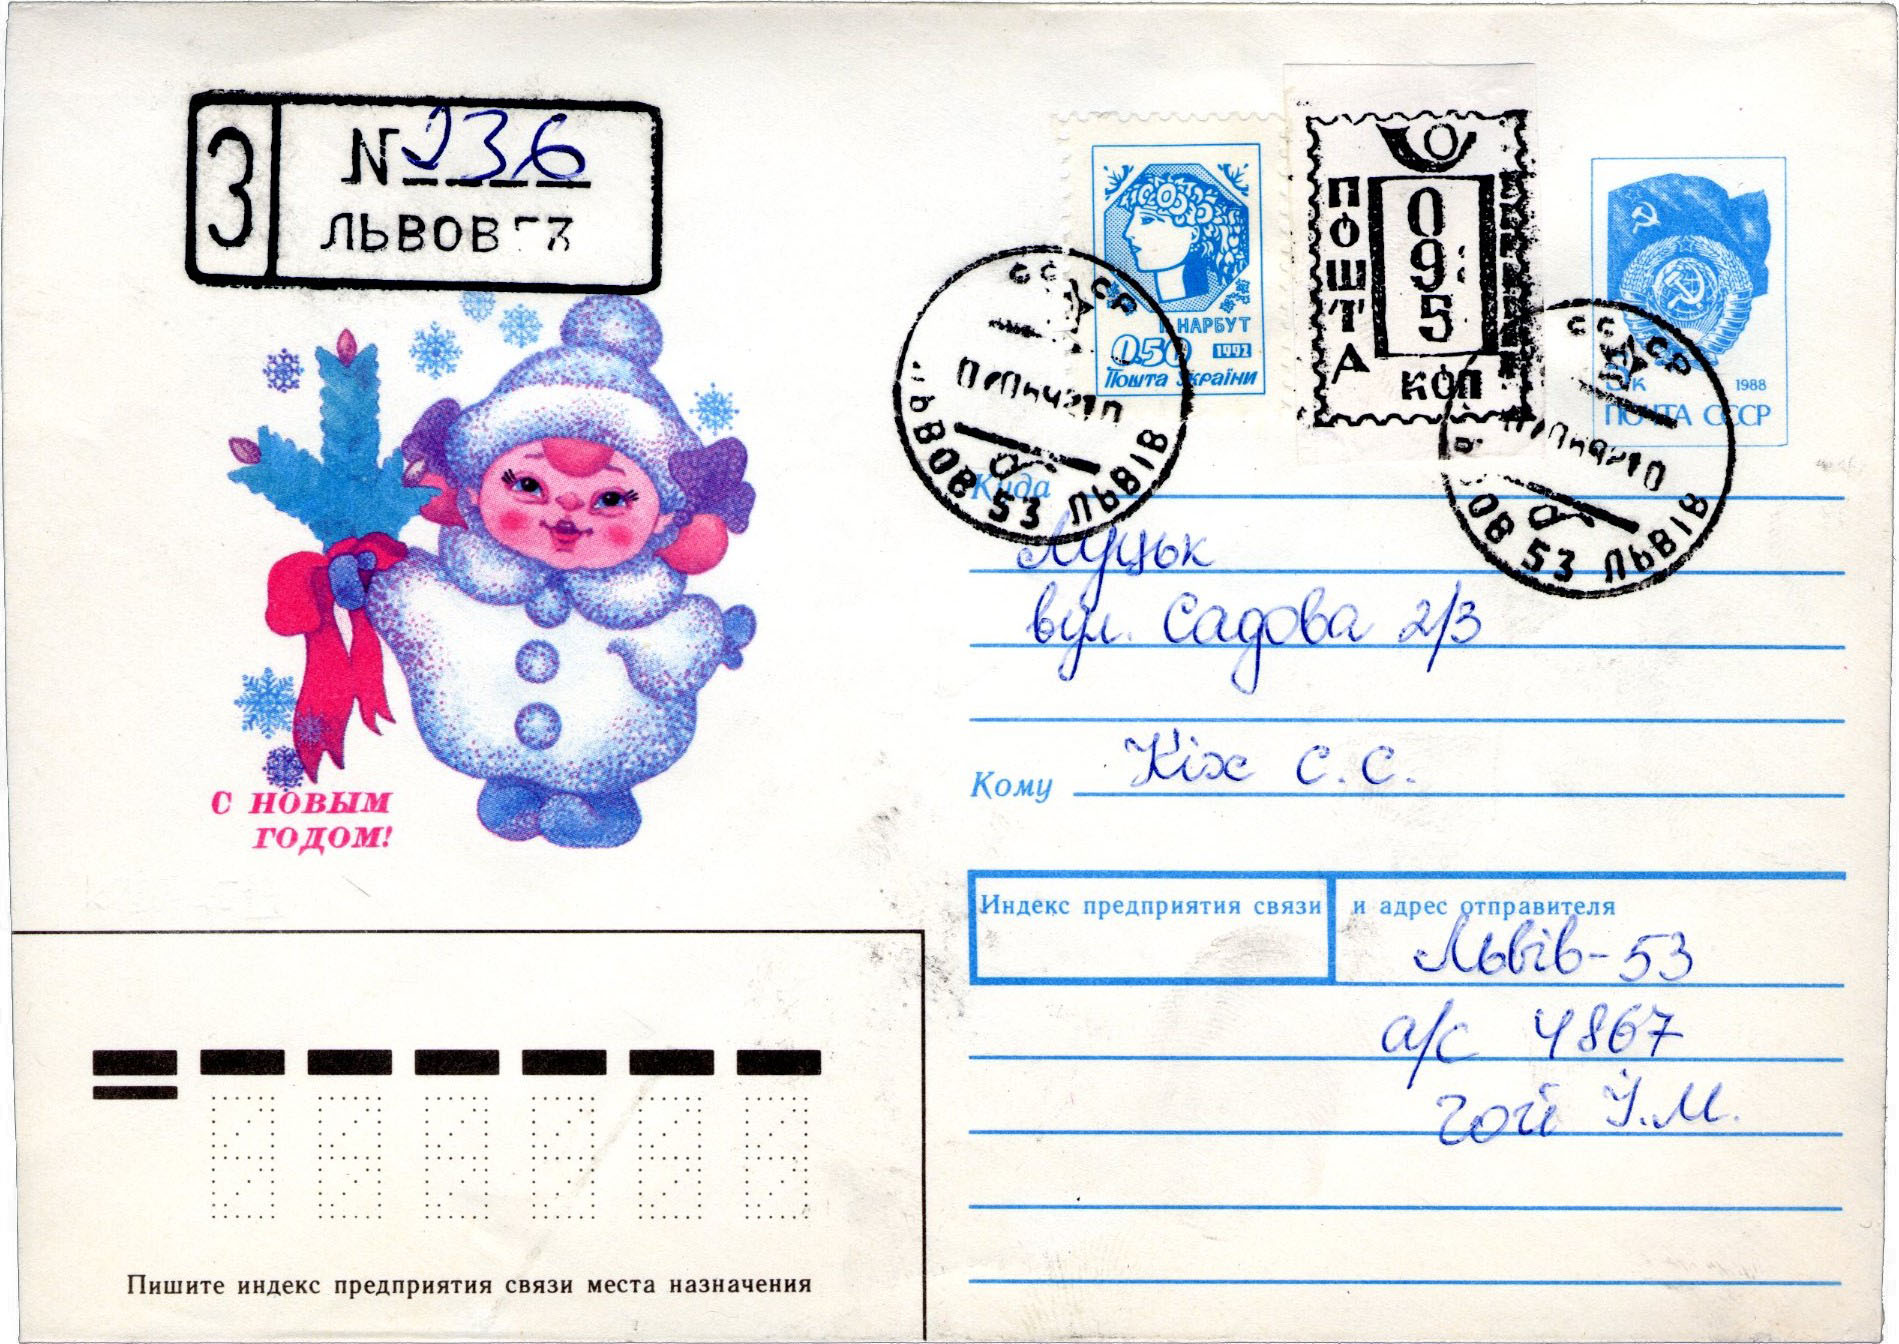 З
№ 236
ЛЬВОВ
Г. НАРБУТ
0.50 1992
Пошта України
ПОШТА
095
коп
1988
ПОЧТА СССР
СССР
ЛЬВОВ 53 ЛЬВІВ
СССР
ЛЬВОВ 53 ЛЬВІВ
Куда
Луцьк
вул. Садова 2/3
Кому Кіх С. С.
С НОВЫМ
ГОДОМ!
Индекс предприятия связи и адрес отправителя
Львів-53
а/с 4867
Пишите индекс предприятия связи места назначения